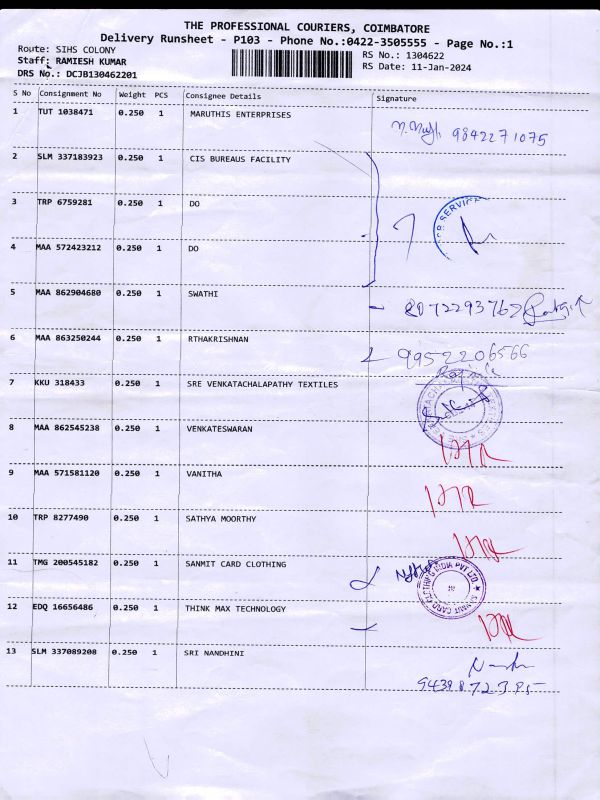 THE PROFESSIONAL COURIERS, COIMBATORE
Delivery Runsheet - P103 - Phone No.:0422-3505555 - Page No.:1
Route: SIHS COLONY
RS No.: 1304622
Staff: RAMIESH KUMAR
RS Date: 11-Jan-2024
DRS No.: DCJB130462201
S No Consignment No Weight PCS Consignee Details Signature
1 TUT 1038471 0.250 1 MARUTHIS ENTERPRISES
9842271075
2 SLM 337183923 0.250 1 CIS BUREAUS FACILITY
3 TRP 6759281 0.250 1 DO
4 MAA 572423212 0.250 1 DO
5 MAA 862904680 0.250 1 SWATHI
6 MAA 863250244 0.250 1 RTHAKRISHNAN
9952206566
7 KKU 318433 0.250 1 SRE VENKATACHALAPATHY TEXTILES
8 MAA 862545238 0.250 1 VENKATESWARAN
9 MAA 571581120 0.250 1 VANITHA
10 TRP 8277490 0.250 1 SATHYA MOORTHY
11 TMG 200545182 0.250 1 SANMIT CARD CLOTHING
SANMIT CARD CLOTHING INDIA PVT LTD
12 EDQ 16656486 0.250 1 THINK MAX TECHNOLOGY
13 SLM 337089208 0.250 1 SRI NANDHINI